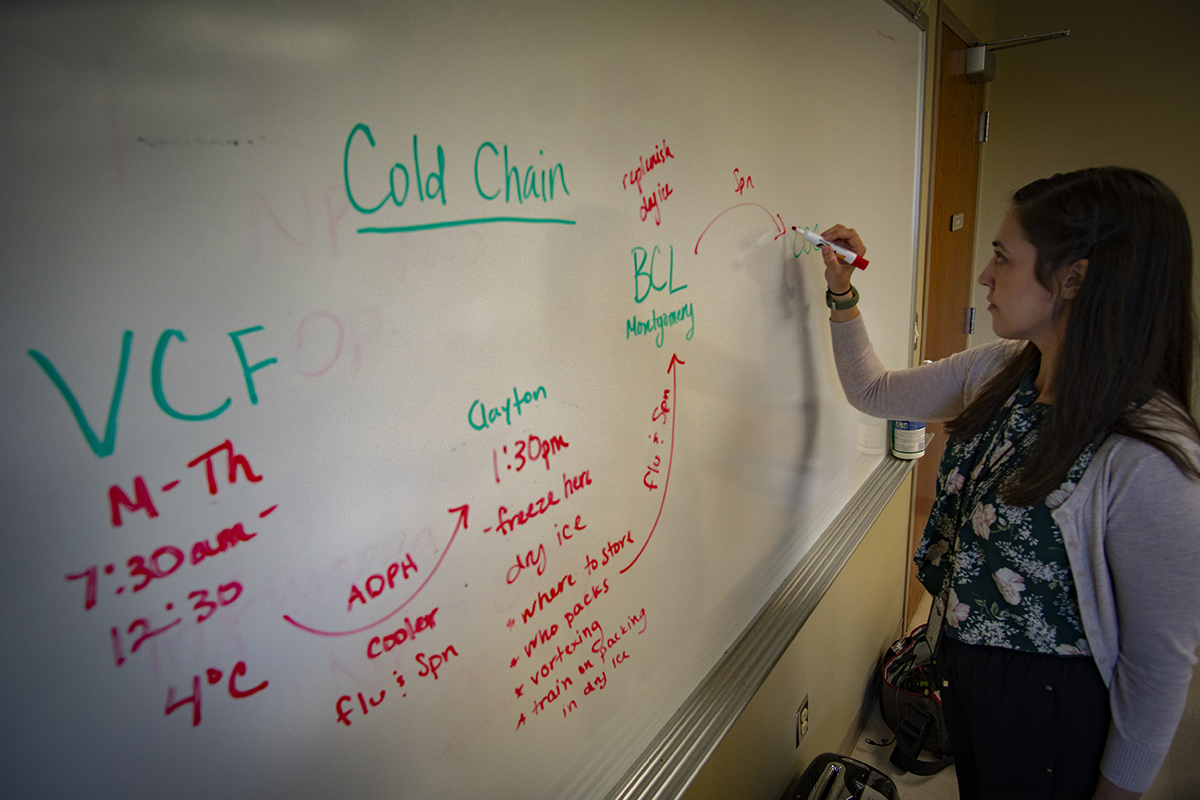 Cold Chain
VCF
M-Th
7:30am -
12:30
4°C
ADPH
cooler
flu & Spn
Clayton
1:30pm
- freeze here
dry ice
* where to store
* who packs
* vortexing
* train on packing
in dry ice
flu & Spn
replenish
dry ice
BCL
Montgomery
Spn